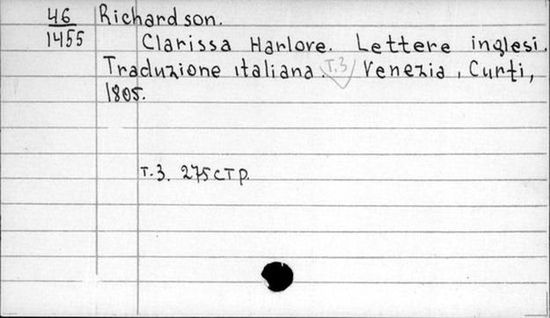 46 Richardson.
1455 Clarissa Harlore. Lettere inglesi.
Traduzione italiana. т.3 Venezia, Curti,
1805.
т.3. 275 стр.